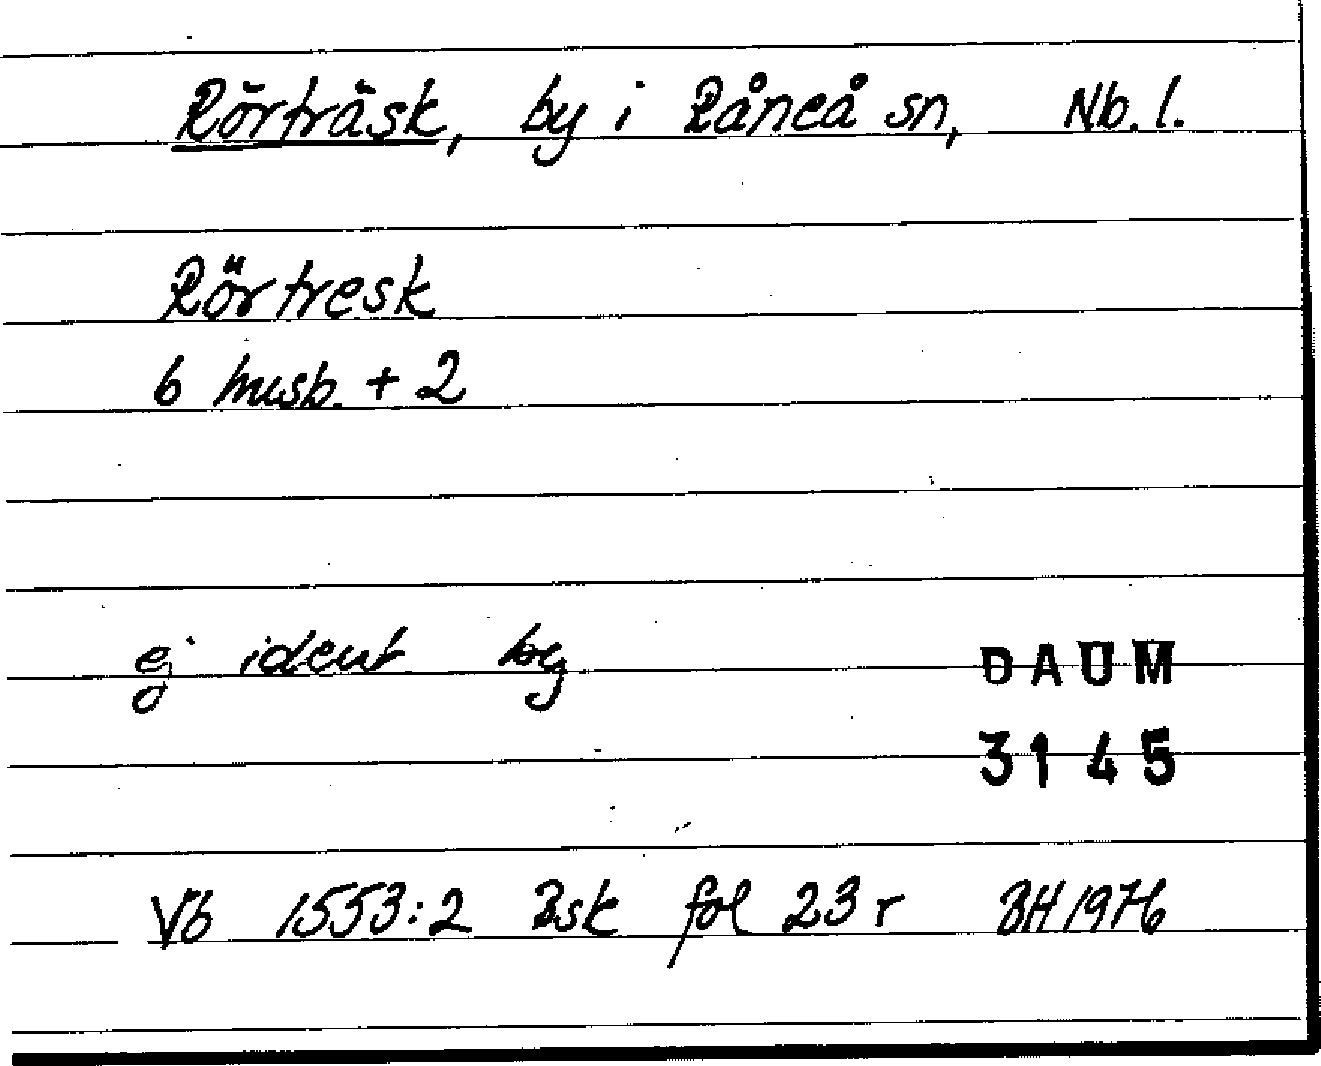 Rörträsk, by i Råneå sn, Nb. l.
Rörtresk
6 husb. + 2
ej ident by
DAUM
3145
Vb 1553:2 Bsk fol 23 r BH 1976